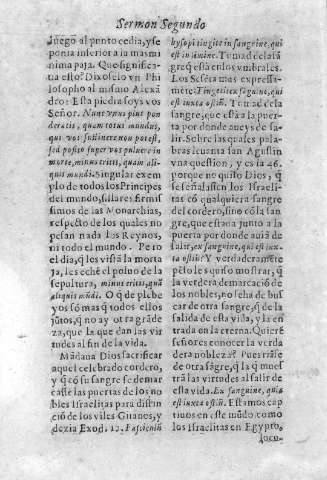 Sermon Segundo
luego al punto cedia, y se
ponia inferior a la mas mi
nima paja. Que significa-
ua esto? Dixoselo vn Phi
losopho al mismo Alexã
dro: Esta piedra soys vos
Señor. Nunc vnus plus pon
deratis, quam totus mundus,
qui vos sustinere non potest,
sed posito super vos puluere in
morte, minus eritis, quam ali-
quis mũdi. Singular exem
plo de todos los Principes
del mundo, sillares firmis
simos de las Monarchias,
respecto de los quales no
pesan nada los Reynos,
ni todo el mundo. Pero
el dia, q̃ les vista la morta
ja, les eche el poluo de la
sepultura, minus eritis, quã
aliquis mũdi. O q̃ de plebe
yos so mas q̃ todos ellos
jũtos, q̃ no ay otra grãde
za, que la que dan las vir
tudes al fin de la vida.
Mãdaua Dios sacrificar
aquel celebrado cordero,
y q̃ cõ su sangre se demar
casse las puertas de los no
bles Israelitas para distin
ciõ de los viles Gitanos, y
dezia Exod. 12. Fasciculũ
hysopi tingite in sangnine, qui
est in limine. Tomad de la sã
gre q̃ està en los vmbrales.
Los Setẽta mas expressa-
mẽte: Tingetis ex sãguine, qui
est iuxta ostiũ. Tomad de la
sangre, que està a la puer-
ta por donde aueys de sa-
lir. Sobre las quales pala-
bras leuanta san Agustin
vna question, y es la 46.
porque no quiso Dios, q̃
se señalassen los Israeli-
tas cõ qualquiera sangre
del cordero, sino cõ la sã-
gre, que estaua junto a la
puerta por donde auiã de
salir, ex sanguine, qui est iux-
ta ostiũ? Y verdaderamẽte
pẽso les quiso mostrar, q̃
la verdera demarcaciõ de
los nobles, no se ha de bus
car de otra sangre, q̃ de la
salida de esta vida, y la en
trada en la eterna. Quierẽ
señores conocer la verda
dera nobleza? Pues no sea
de otra sãgre, q̃ la q̃ mues
trã las virtudes al salir de
esta vida. Ex sanguine, qui
est iuxta ostiũ. Estamos cap
tiuos en este mũdo como
los Israelitas en Egypto,